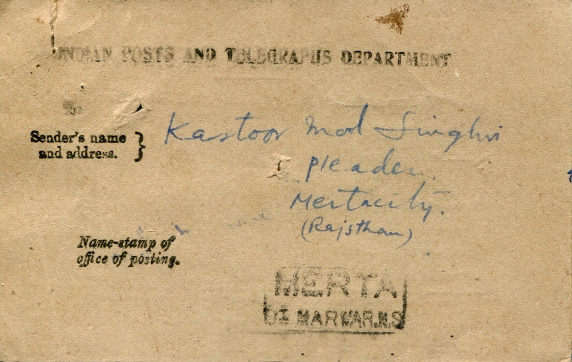 INDIAN POSTS AND TELEGRAPHS DEPARTMENT
To
Sender's name
and address.
Kastoor Mal Singhvi
Pleader.
Mertacity.
(Rajsthan)
Name-stamp of
office of posting.
MERTA
DT MARWAR.M.S